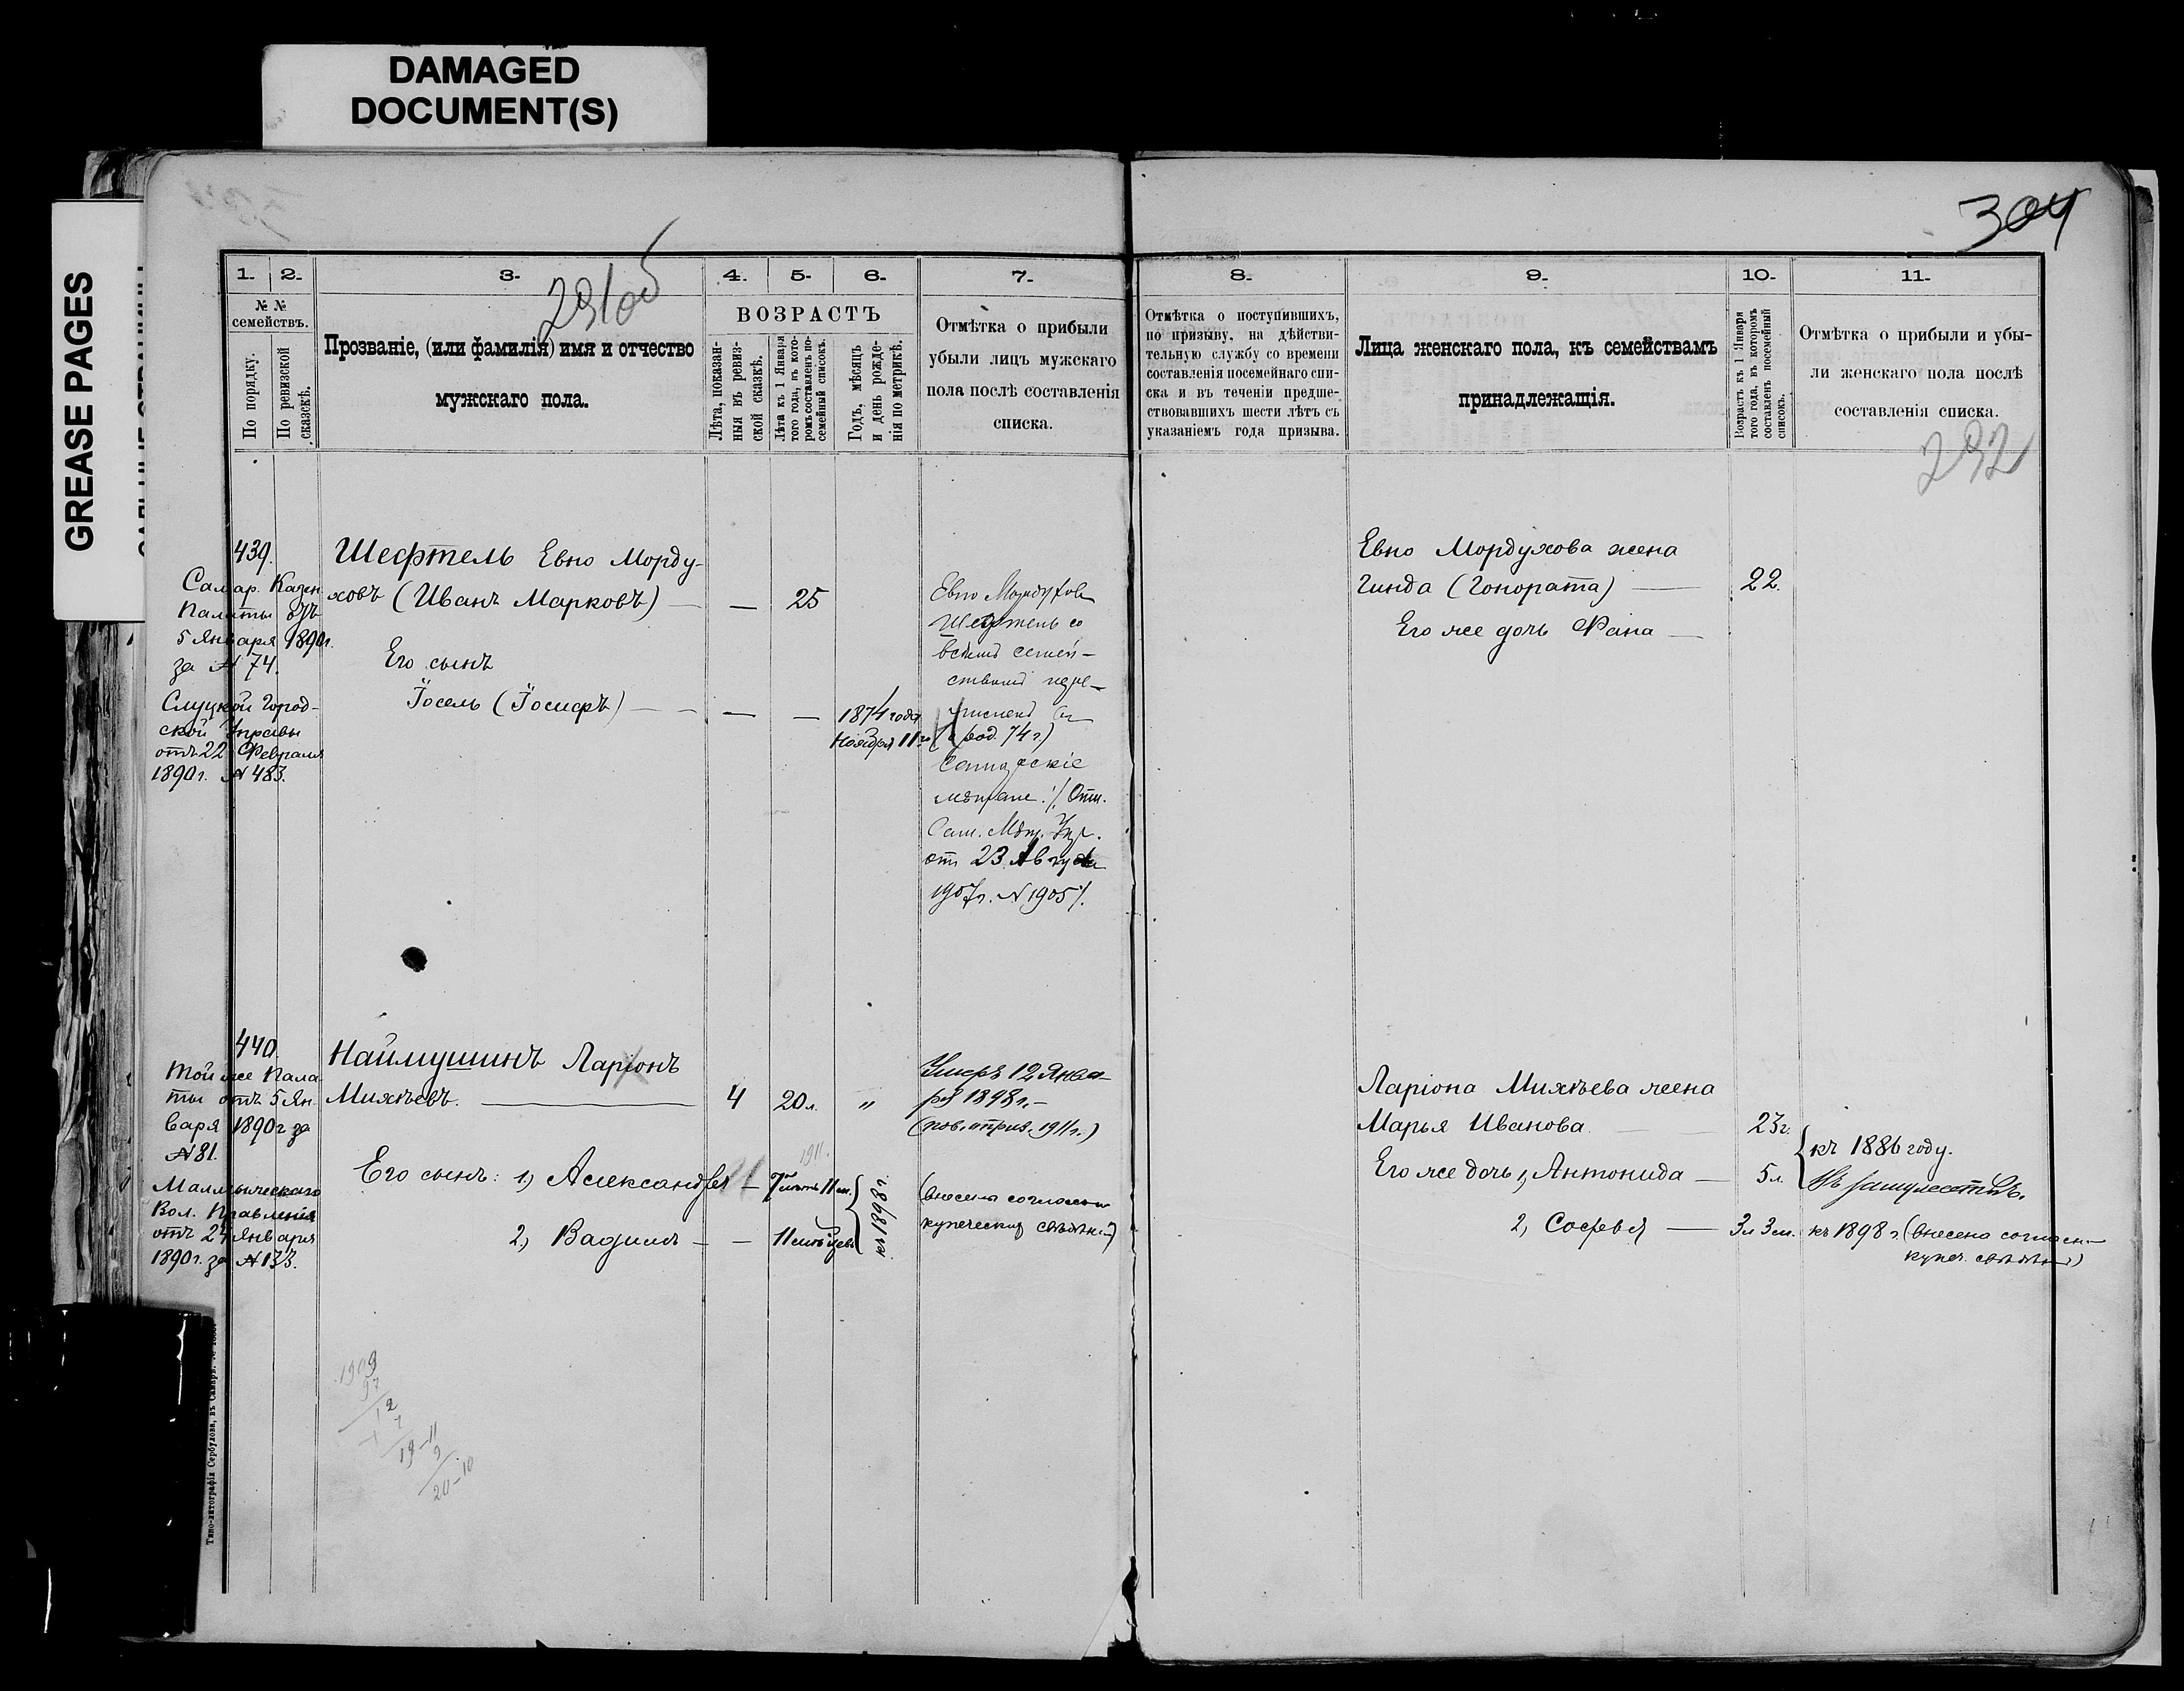 DAMAGED
DOCUMENT(S)
GREASE PAGES
304
291об
292
1. 2. 3. 4. 5. 6. 7. 8. 9. 10. 11.
№ №
семействъ.
По порядку.
По ревизской
сказкѣ.
Прозваніе, (или фамилія) имя и отчество
мужскаго пола.
ВОЗРАСТЪ
Лѣта, показан-
ныя въ ревиз-
ской сказкѣ.
Лѣта къ 1 Января
того года, въ кото-
ромъ составленъ по-
семейный списокъ.
Годъ, мѣсяцъ
и день рожде-
нія по метрикѣ.
Отмѣтка о прибыли
убыли лицъ мужскаго
пола послѣ составленія
списка.
Отмѣтка о поступившихъ,
по призыву, на дѣйстви-
тельную службу со времени
составленія посемейнаго спи-
ска и въ теченіи предше-
ствовавшихъ шести лѣтъ съ
указаніемъ года призыва.
Лица женскаго пола, къ семействамъ
принадлежащія.
Возрастъ къ 1 Января
того года, въ которомъ
составленъ посемейный
списокъ.
Отмѣтка о прибыли и убы-
ли женскаго пола послѣ
составленія списка.
439.
Самар. Казен
Палаты отъ
5 Января 1890г.
за № 74.
Слуцкой Город-
ской Управы
отъ 22 Февраля
1890г. № 483.
Шефтель Евно Морду-
ховъ (Иванъ Марковъ) — — 25
Его сынъ
Іосель (Іосифъ) — — — —
1874 года
Ноября 11го
Евно Мордухов
Шефтель со
всѣмъ семей-
ствомъ пере-
численъ въ
(род. 74 г.)
Самарскіе
мѣщане. /. Отн.
Сам. Мѣщ. Упр.
отъ 23 Августа
1907г. № 1905 /.
Евно Мордухова жена
Гинда (Гонората) — 22.
Его же дочь Фана —
440.
Той же Пала-
ты отъ 5 Ян-
варя 1890г за
№ 81.
Малмыжскаго
Вол. Правленія
отъ 24 Января
1890г. за № 133.
Наймушинъ Ларіонъ
Михѣевъ. — 4 20 л. "
Умеръ 12 Янва-
ря 1898 г. —
(пов. о призв. 1911 г.)
1911.
Его сынъ: 1,) Александръ — 7 лѣтъ 11 м.
2,) Вадимъ — — 11 мѣсяцевъ
къ 1898 г.
(внесены согласно
купческих свѣдѣній)
Ларіона Михѣева жена
Марья Иванова. — 23г.
Его же дочь 1, Антонида — 5 л.
къ 1886 году.
Въ замужествѣ.
2, Софья — 3 л 3 м. къ 1898 г. (внесена согласн.
купч. свѣдѣн)
1909
97
12
7
19-11
20-10
Типо-литографія Сербулова, въ Самарѣ.